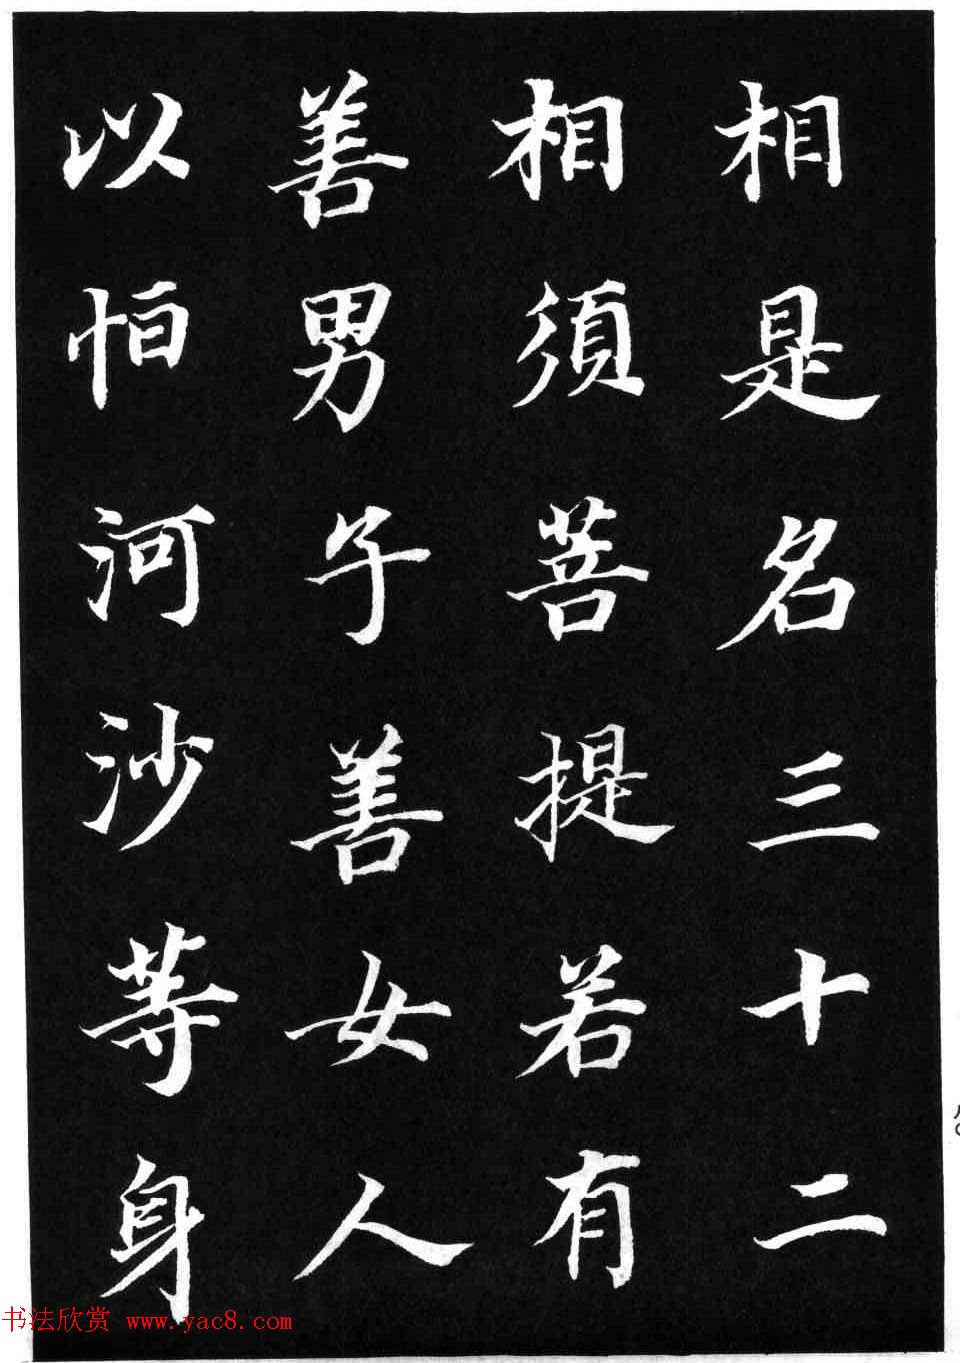 相是名三十二
相須菩提若有
善男子善女人
以恒河沙等身
書法欣赏 www.yac8.com